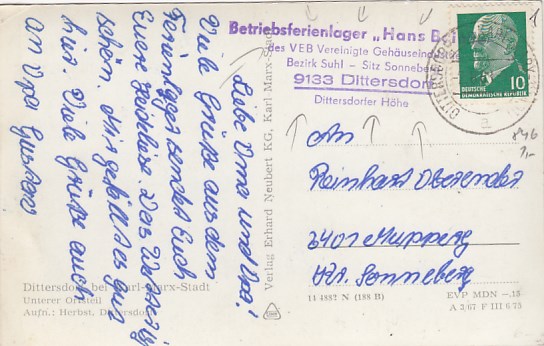 Liebe Oma und Opa!
Viele Grüße aus dem
Ferienlager sendet Euch
Eure Heidelore. Das Wetter ist
schön. Mir gefällt es gut
hier. Viele Grüße auch
an Opa Gustav
Dittersdorf bei Karl-Marx-Stadt
Unterer Ortsteil
Aufn.: Herbst, Dittersdorf
Verlag Erhard Neubert KG, Karl-Marx-Stadt
Betriebsferienlager „Hans B
des VEB Vereinigte Gehäuseindustrie
Bezirk Suhl - Sitz Sonneberg
9133 Dittersdorf
Dittersdorfer Höhe
10
DEUTSCHE
DEMOKRATISCHE REPUBLIK
An
Reinhart Oberender
6401 Mupperg
Kr. Sonneberg
11 4882 N (188 B)
EVP MDN -.15
A 3/67 F III 6 75